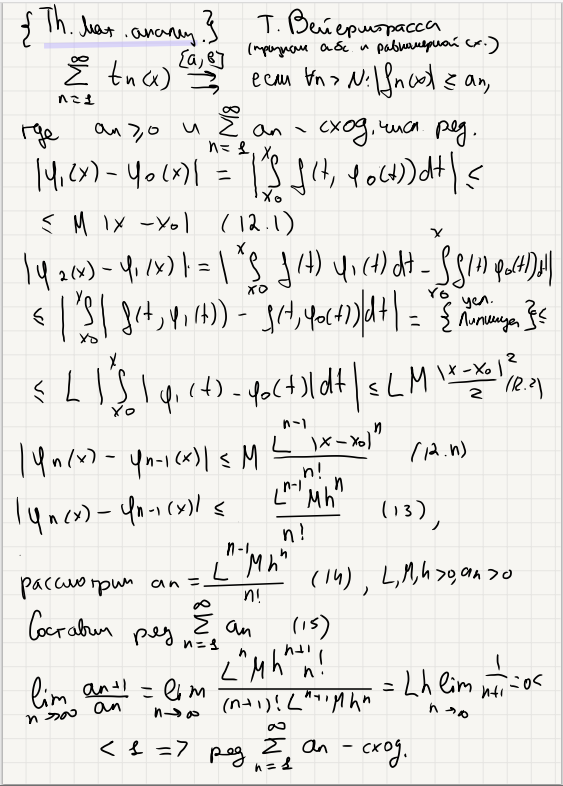 { Th. мат. анализ.} Т. Вейерштрасса
(признак абс. и равномерной сх.)
∞∑n=1 fn(x) ⇉[a,b] если ∀n > N: |fn(x)| ≤ an,
где an ≥ 0 и ∞∑n=1 an - сход. числ. ряд.
|φ1(x) - φ0(x)| = |x∫x0 f(t, φ0(t))dt| ≤
≤ M |x - x0| (12.1)
|φ2(x) - φ1(x)| = |x∫x0 f(t) φ1(t)dt - x∫x0 f(t) φ0(t)dt|
≤ |x∫x0 |f(t, φ1(t)) - f(t, φ0(t))|dt| = {усл. Липшица} ≤
≤ L |x∫x0 |φ1(t) - φ0(t)|dt| ≤ LM |x-x0|²/2 (12.2)
|φn(x) - φn-1(x)| ≤ M L^(n-1) |x-x0|^n / n! (12.n)
|φn(x) - φn-1(x)| ≤ L^(n-1) M h^n / n! (13),
рассмотрим an = L^(n-1) M h^n / n! (14), L, M, h > 0, an > 0
Составим ряд ∞∑n=1 an (15)
lim n→∞ an+1/an = lim n→∞ L^n M h^(n+1) n! / (n+1)! L^(n-1) M h^n = Lh lim n→∞ 1/n+1 = 0 <
< 1 => ряд ∞∑n=1 an - сход.